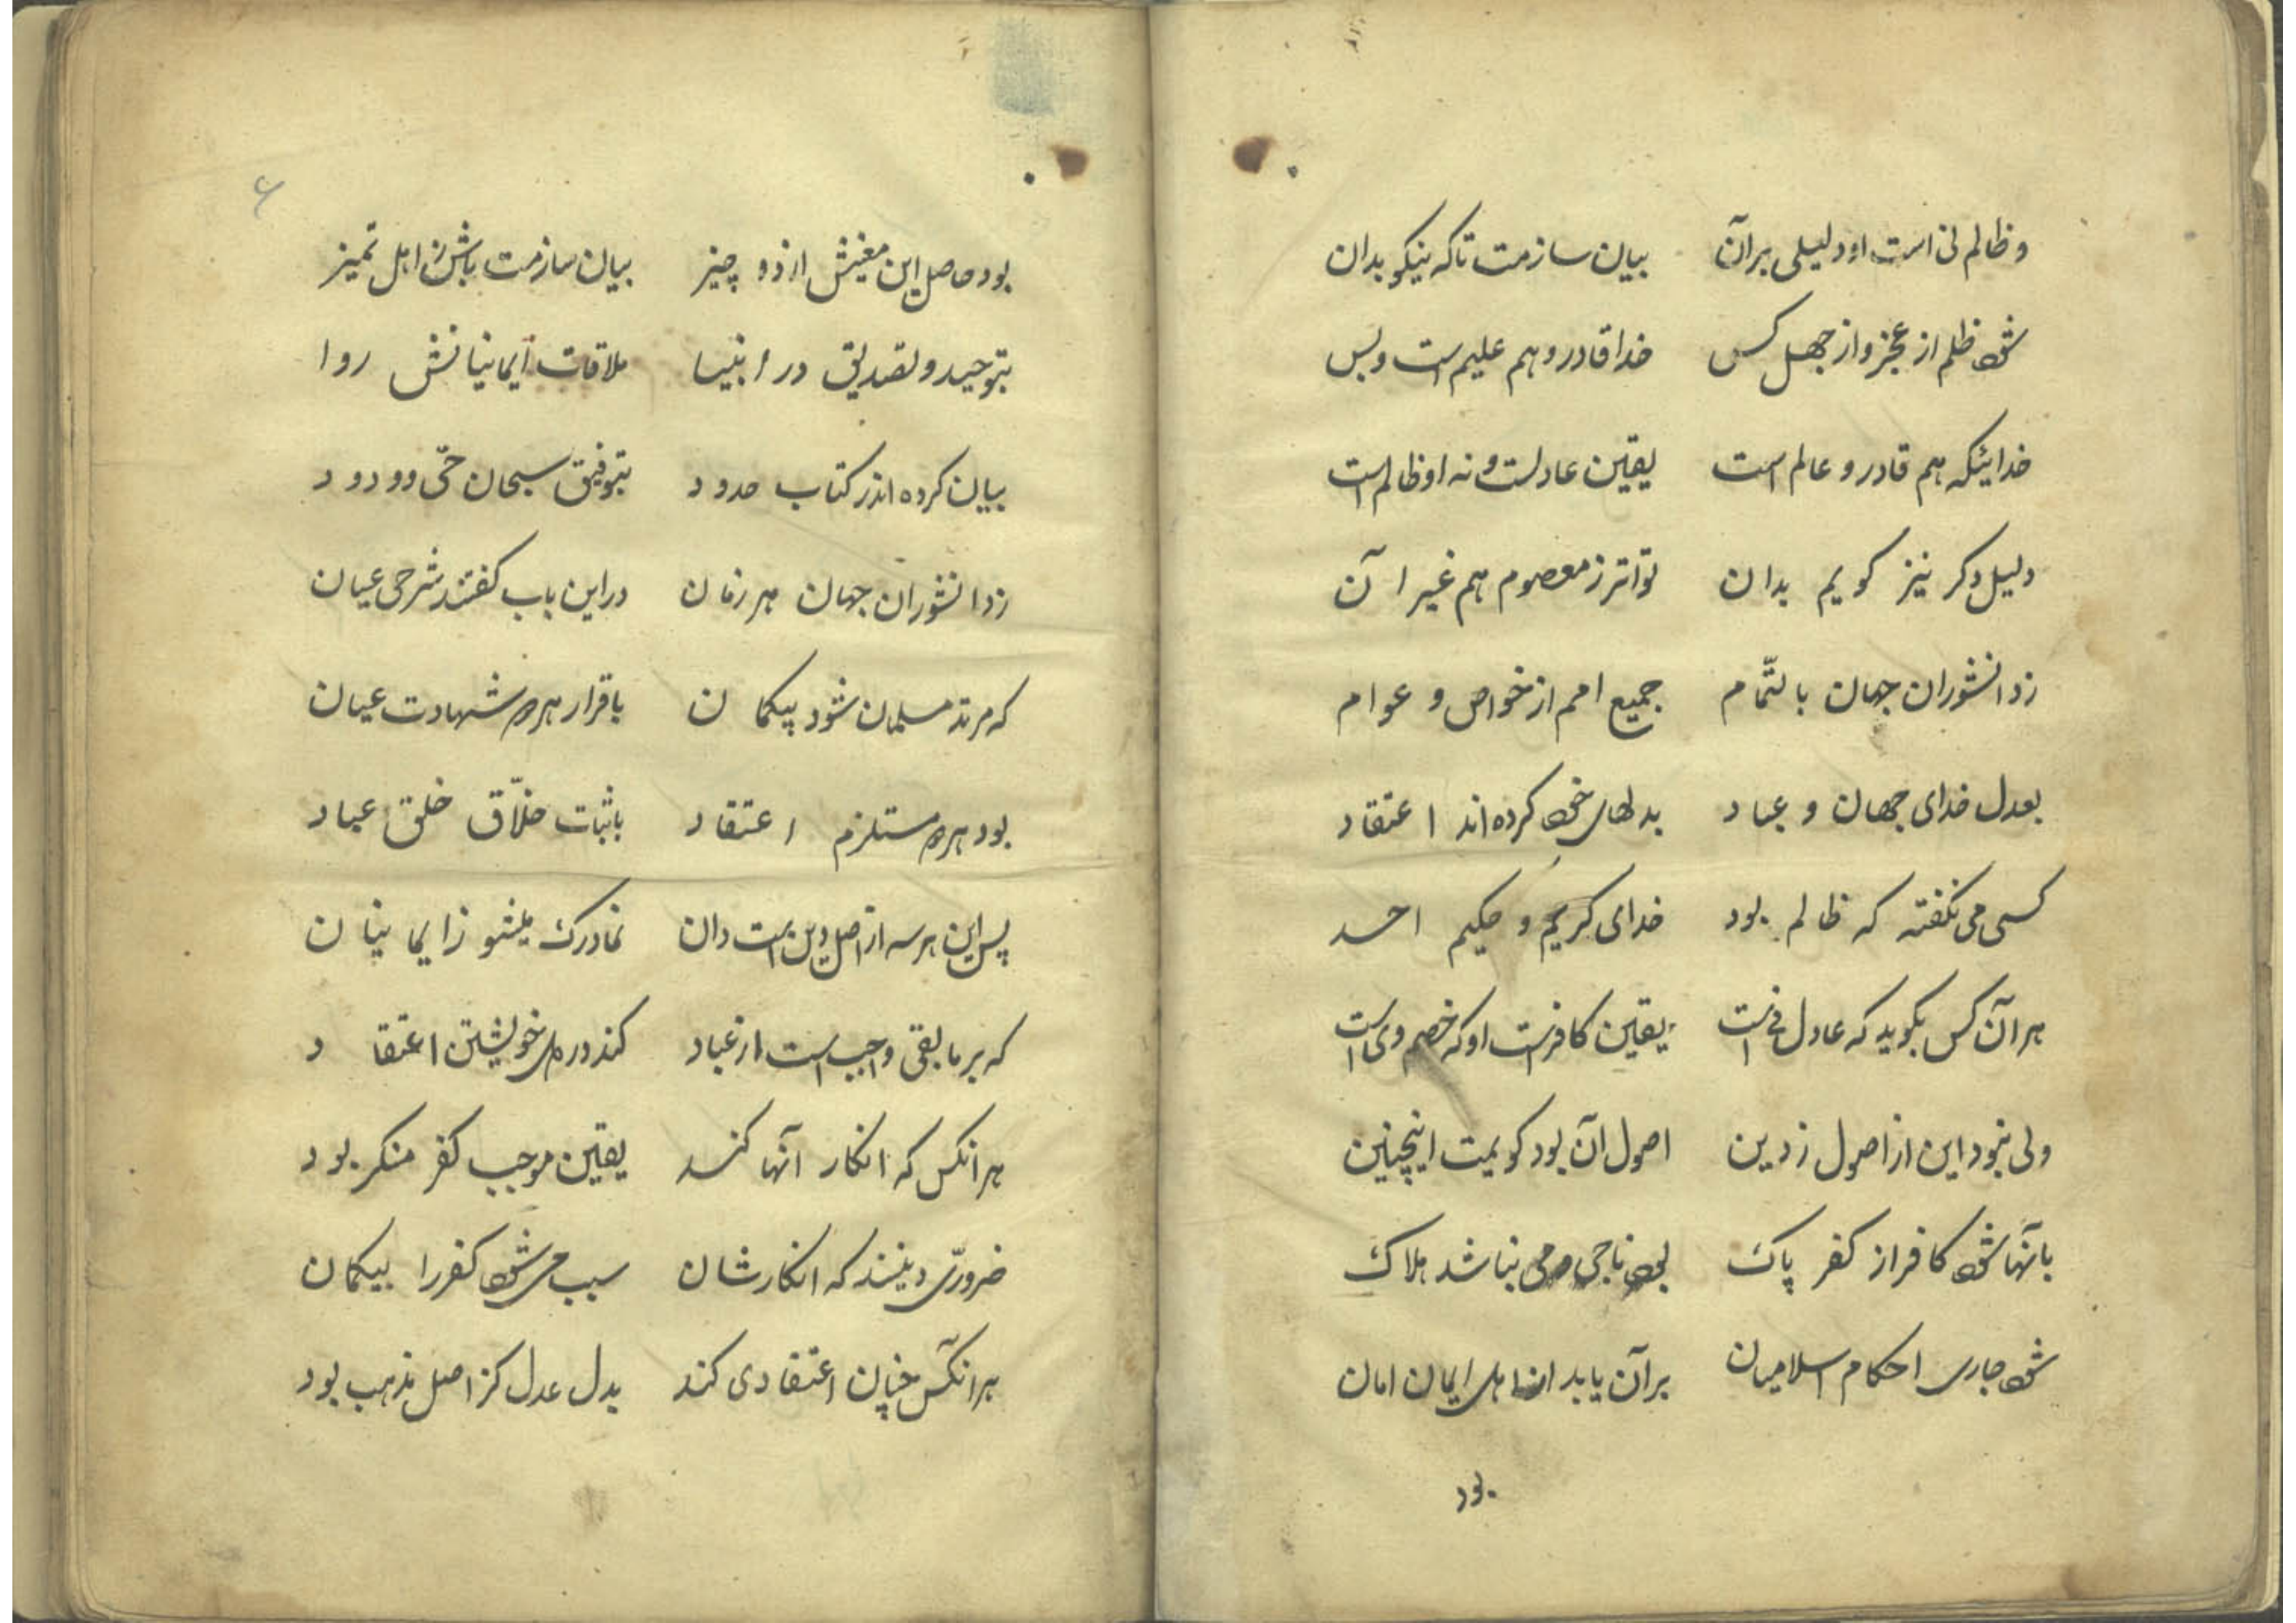 و ظالم نی است او دلیلی بر آن بیان سازمت تا که نیکو بدان
شود ظلم از عجز و از جهل کس خدا قادر و هم علیم است و بس
خدائیکه هم قادر و عالم است یقین عادلست و نه او ظالم است
دلیل دکر نیز کویم بدان تواتر ز معصوم هم غیر آن
ز دانشوران جهان بالتّمام جمیع امم از خواص و عوام
بعدل خدای جهان و عباد بدلهای خود کرده اند اعتقاد
کسی می نکفته که ظالم بود خدای کریم و حکیم احد
هر آن کس بکوید که عادل نی است یقین کافرست او که خصم وی است
ولی نبود این از اصول ز دین اصول آن بود کویمت اینچنین
بآنها شود کافر از کفر پاک بود ناجی و می نباشد هلاک
شود جاری احکام اسلامیان بر آن یابد از اهل ایمان امان
بود
۶
بود حاصل این معنیش از دو چیز بیان سازمت باش ز اهل تمیز
بتوحید و تصدیق در انبیا ملاقات ایمانیانش روا
بیان کرده اندر کتاب حدود بتوفیق سبحان حیّ و ودود
ز دانشوران جهان هر زمان در این باب کفتند شرحی عیان
که مرتد مسلمان شود بیکمان باقرار هر دو شهادت عیان
بود هر دو مستلزم اعتقاد باثبات خلّاق خلق عباد
پس این هر سه از اصل دین است دان نما درک میشنو ز ایمانیان
که بر مابقی واجب است از عباد کند در دل خویشتن اعتقاد
هر انکس که انکار آنها کند یقین موجب کفر منکر بود
ضروریّ دینند که انکارشان سبب می شود کفر را بیکمان
هر آنکس چنان اعتقادی کند بدل عدل کز اصل مذهب بود